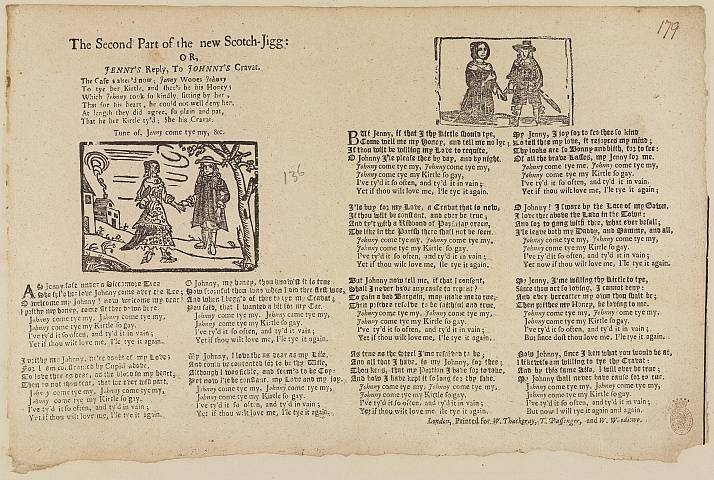 179
The Second Part of the new Scotch-Jigg:
OR,
JENNY'S Reply, To JOHNNY'S Cravat.
The Case is alter'd now; Jenny Wooes Johnny
To tye her Kirtle, and shee'l be his Honey;
Which Johnny took so kindly, sitting by her,
That for his heart, he could not well deny her,
At length they did agree, so plain and pat,
That he her Kirtle ty'd; She his Cravat.
Tune of, Jenny come tye my, &c.
136
AS Jenny sate under a Siccomore Tree
O welcome my Johnny! now welcome my dear!
I prithy my honey, come sit thee down here.
Johnny come tye my, Johnny come tye my,
Johnny come tye my Kirtle so gay.
I've ty'd it so often, and ty'd it in vain;
Yet if thou wilt love me, I'le tye it again.
I prithy my Johnny,
For I am confirmed by Cupid above,
To love thee as dear, as the blood in my heart,
Then do not thou fear, that we ever will part.
Johnny come tye my, Johnny come tye my,
Johnny come tye my Kirtle so gay.
I've ty'd it so often, and ty'd in vain;
Yet if thou wilt love me, I'le tye it again.
O Johnny, my honey, thou know'st it is true
How scornful thou was when I did thee first woo,
And when I begg'd of thee to tye my Cravat,
You said, that I wanted a bit for my Cat.
Johnny come tye my, Johnny come tye my,
Johnny come tye my Kirtle so gay.
I've ty'd it so often, and ty'd in vain;
Yet if thou wilt love me, I'le tye it again.
My Johnny, I love thee as dear as my Life,
And could be contented for to be thy Wife,
Although I was false, and seem'd to be Coy:
Yet now I'le be constant, my Love and my joy.
Johnny come tye my, Johnny come tye my,
Johnny come tye my Kirtle so gay.
I've ty'd it so often, and ty'd in vain;
Yet if thou wilt love me, I'le tye it again.
BUt Jenny, if that I thy Kirtle should tye,
Come tell me my Honey, and tell me no lye;
If thou wilt be willing my Love to requite,
O Johnny I'le please thee by day, and by night.
Johnny come tye me, Johnny come tye my,
Johnny come tye my Kirtle so gay.
I've ty'd it so often, and ty'd it in vain;
Yet if thou wilt love me, I'le tye it again.
I'le buy for my Love, a Cravat that is new,
If thou wilt be constant, and ever be true;
And ty't with a Ribbond of
The like in the Parish there shall not be seen.
Johnny come tye my, Johnny come tye my,
Johnny come tye my Kirtle so gay.
I've ty'd it so often, and ty'd it in vain;
Yet if thou wilt love me, I'le tye it again.
But Johnny now tell me, if that I consent,
Shall I never have any cause to repent?
To gain a bad Bargain, may make me to rue;
Then prithee resolve to be faithful and true,
Johnny come tye my, Johnny come tye my,
Johnny come tye my Kirtle so gay.
I've ty'd it so often, and ty'd in vain;
Yet if thou wilt love me, I'le tye it again.
As true as the Steel I am resolved to be;
And all that I have, is my Johnny, for thee;
Then keep, that my Portion I have for to take,
and now I have kept it so long for thy sake.
Johnny come tye my, Johnny come tye my,
Johnny come tye my Kirtle so gay.
I've ty'd it so often, and ty'd it in vain;
Yet if thou wilt love me, I'le tye it again.
My Jenny, I joy for to see thee so kind
To tell thee my love, it rejoyces my mind;
Thy looks are so Bonny and blith, for to see;
Of all the brave Lasses, my Jenny for me.
Johnny come tye my, Johnny come tye my,
Johnny come tye my Kirtle so gay.
I've ty'd it so often, and ty'd it in vain;
Yet if thou wilt love me, I'le tye it again;
O Johnny! I swear by the Lace of my Gown,
I love thee above the Lard in the Town;
And for to gang with thee, what ever befall;
I'le leave both my Daddy, and Mammy, and all,
Johnny come tye my, Johnny come tye my,
Johnny come tye my Kirtle so gay.
I've ty'd it so often, and ty'd it in vain;
Yet now if thou wilt love me, I'le tye it again.
My Jenny, I'me willing thy Kirtle to tye,
Since thou art so loving, I cannot deny;
And ever hereafter my own thou shalt be;
Then prithee my Honey, be loving to me.
Johnny come tye my, Johnny come tye my,
Johnny come tye my Kirtle so gay.
I've ty'd it so often, and ty'd it in vain;
But since thou dost love me, I'le tye it again.
Now Johnny, since I ken what you would be at,
I likewise am willing to tye thy Cravat:
And by this same Kiss, I will ever be true;
My Johnny shall never have cause for to rue.
Johnny come tye my, Johnny come tye my,
Johnny come tye my Kirtle so gay.
I've ty'd it so often, and ty'd it in vain;
But now I will tye it again and again.
London, Printed for W. Thackeray, T. Passinger, and W. Whitwood.